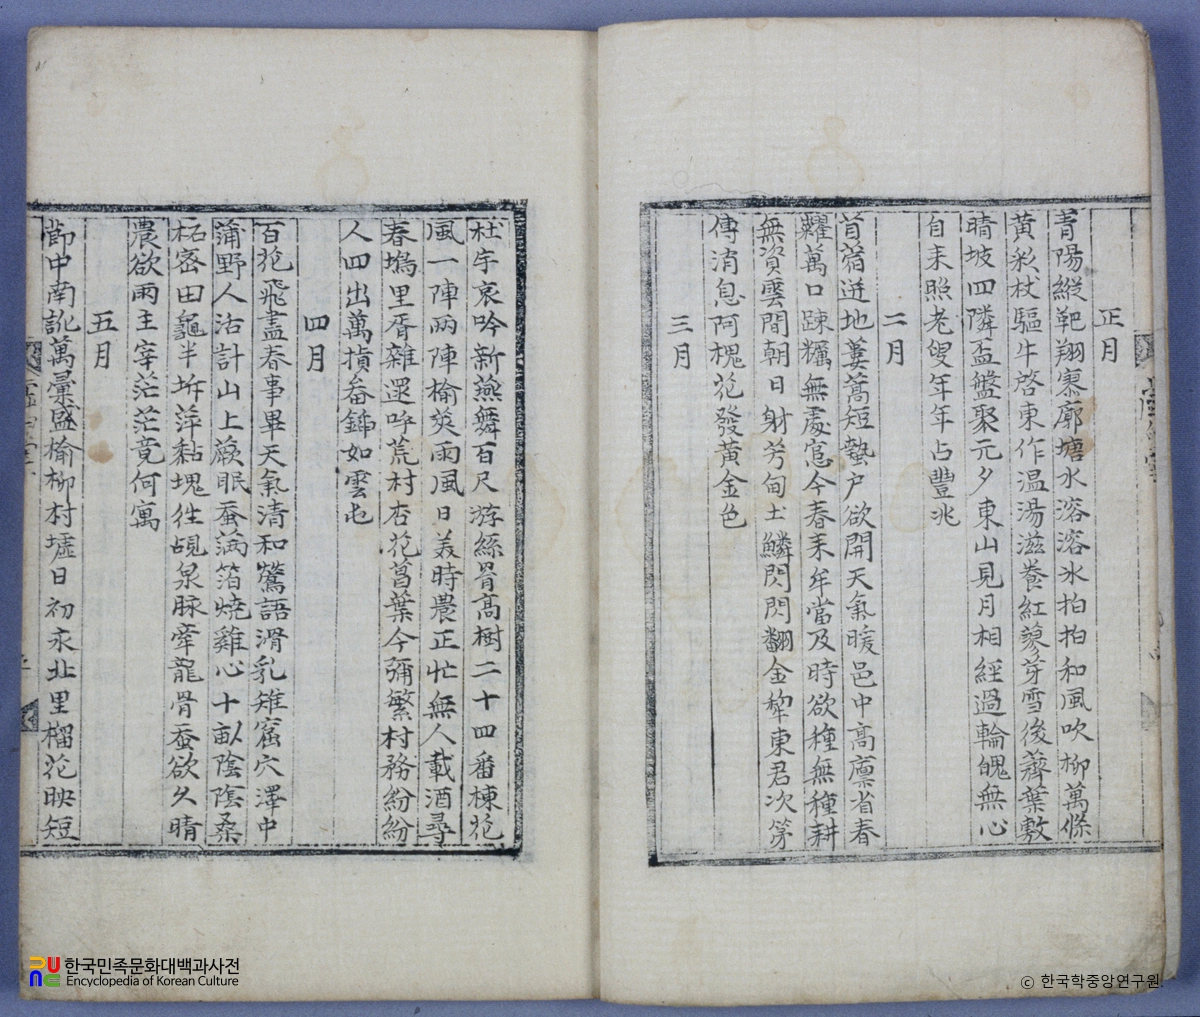 正月
青陽縱靶翔寥廓塘水溶溶氷拍拍和風吹柳萬條
黃彩杖驅牛啓東作溫湯滋養紅蓼芽雪後薺葉敷
晴坡四隣盃盤聚元夕東山見月相經過輪魄無心
自來照老叟年年占豐兆
二月
苜蓿迸地蔞蒿短蟄戶欲開天氣暖邑中高廩省春
糶萬口踈糲無處窓今春耒牟當及時欲種無種耕
無資雲間朝日射芳甸土鱗閃閃翻金犂東君次第
傳消息阿槐花發黃金色
三月
杜宇哀吟新燕舞百尺游絲胃高樹二十四番楝花
風一陣兩陣榆莢雨風日美時農正忙無人載酒尋
春塢里胥雜遝呼荒村杏花菖葉今彌繁村務紛紛
人四出萬損畚鍤如雲屯
四月
百花飛盡春事畢天氣清和鶯語滑乳雉窟穴澤中
蒲野人沽計山上蕨眠蚕滿箔燒雞心十畝陰陰桑
柘密田龜半坼萍黏塊徃覘泉脉牽龍骨蚕欲久晴
農欲雨主宰茫茫竟何寓
五月
節中南訛萬彙盛榆柳村墟日初永北里榴花映短
한국민족문화대백과사전
Encyclopedia of Korean Culture
© 한국학중앙연구원.